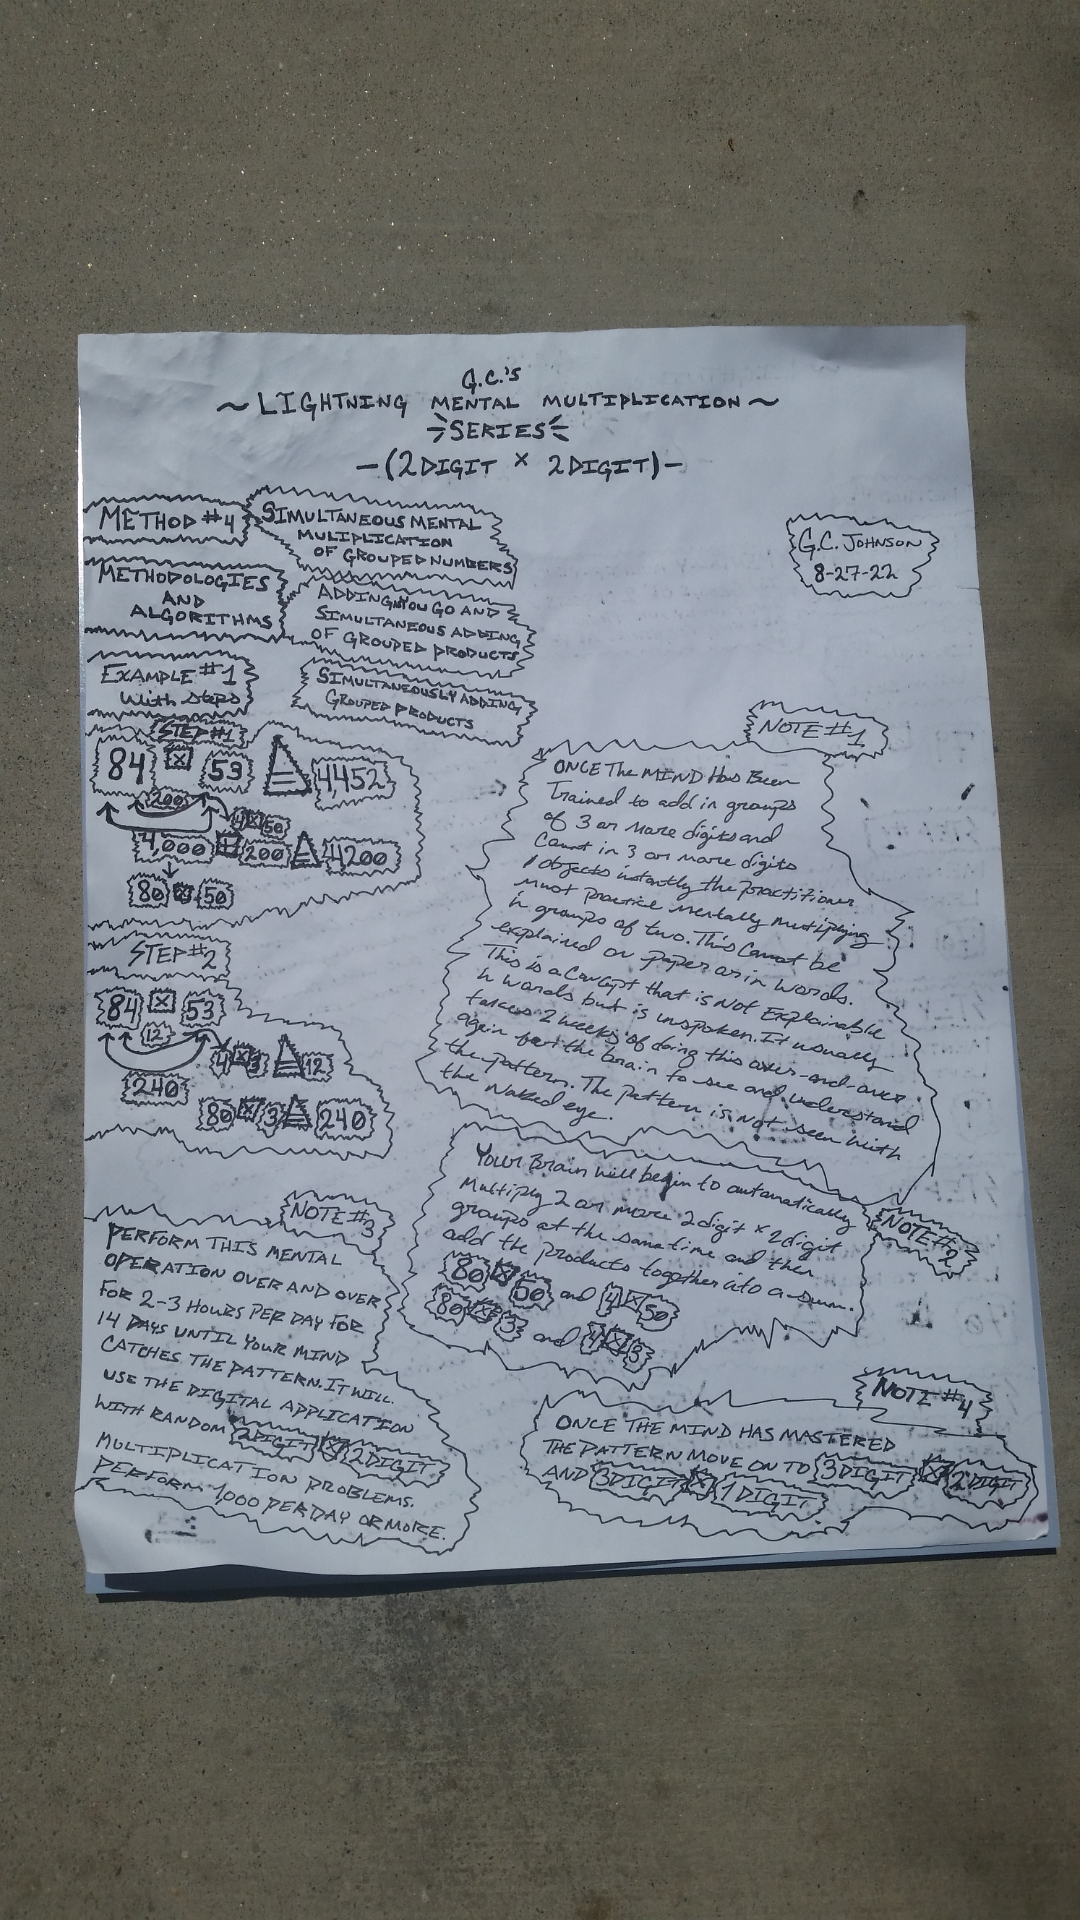 G.C.'S
~ LIGHTNING MENTAL MULTIPLICATION ~
SERIES
-(2DIGIT × 2DIGIT)-
METHOD #4
SIMULTANEOUS MENTAL
MULIPLICATION
OF GROUPED NUMBERS
G.C. JOHNSON
8-27-22
METHODOLOGIES
AND
ALGORITHMS
ADDING YOU GO AND
SIMULTANEOUS ADDING
OF GROUPED PRODUCTS
EXAMPLE #1
With Steps
SIMULTANEOUSLY ADDING
GROUPED PRODUCTS
STEP #1
84 × 53 4452
200
4×50
4,000 + 200 4200
80 × 50
STEP #2
84 × 53
12
4×3 12
240
80 × 3 240
NOTE #1
ONCE The MIND Has Been
Trained to add in groups
of 3 or more digits and
Count in 3 or more digits
objects instantly the practitioner
must practice mentally multiplying
in groups of two. This cannot be
explained on paper or in words.
This is a Concept that is not Explainable
in words but is unspoken. It usually
takes 2 weeks of doing this over-and-over
again for the brain to see and understand
the pattern. The pattern is not seen with
the Naked eye.
NOTE #2
Your Brain will begin to automatically
Multiply 2 or more 2digit × 2digit
groups at the same time and then
add the products together into a sum.
80 × 50 and 4×50
80×3 and 4×3
NOTE #3
PERFORM THIS MENTAL
OPERATION OVER AND OVER
FOR 2-3 HOURS PER DAY FOR
14 DAYS UNTIL YOUR MIND
CATCHES THE PATTERN. IT WILL.
USE THE DIGITAL APPLICATION
WITH RANDOM 2DIGIT × 2DIGIT
MULTIPLICATION PROBLEMS.
PERFORM 1,000 PER DAY OR MORE.
NOTE #4
ONCE THE MIND HAS MASTERED
THE PATTERN MOVE ON TO 3DIGIT × 2DIGIT
AND 3DIGIT × 1DIGIT